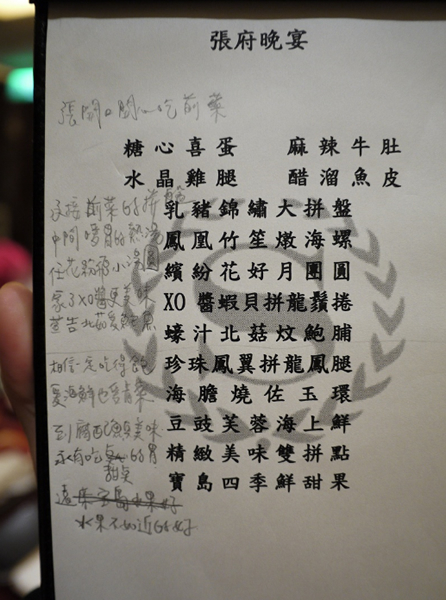 張府晚宴
張開口開心吃前菜
糖心喜蛋 麻辣牛肚
水晶雞腿 醋溜魚皮
這是前菜的拼盤
乳豬錦繡大拼盤
中間的熱湯
鳳凰竹笙燉海螺
小湯圓
繽紛花好月圓圓
XO醬更美味
XO醬蝦貝拼龍鬚捲
蠔汁北菇炆鮑脯
相信一定吃得飽
珍珠鳳翼拼龍鳳腿
海鮮
海膽燒佐玉環
美味
豆豉芙蓉海上鮮
永有吃甜點的胃
精緻美味雙拼點
寶島四季鮮甜果
水果不如近的好